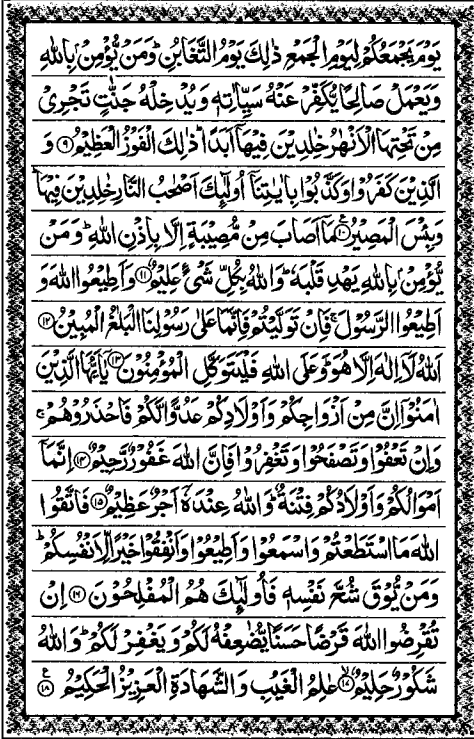 يَوْمَ يَجْمَعُكُمْ لِيَوْمِ الْجَمْعِ ذٰلِكَ يَوْمُ التَّغَابُنِ ؕ وَمَنْ يُّؤْمِنْۢ بِاللّٰهِ
وَيَعْمَلْ صَالِحًا يُّكَفِّرْ عَنْهُ سَيِّاٰتِهٖ وَيُدْخِلْهُ جَنّٰتٍ تَجْرِيْ
مِنْ تَحْتِهَا الْاَنْهٰرُ خٰلِدِيْنَ فِيْهَاۤ اَبَدًا ؕ ذٰلِكَ الْفَوْزُ الْعَظِيْمُ ﴿۹﴾ وَ
الَّذِيْنَ كَفَرُوْا وَكَذَّبُوْا بِاٰيٰتِنَاۤ اُولٰٓئِكَ اَصْحٰبُ النَّارِ خٰلِدِيْنَ فِيْهَا ؕ
وَبِئْسَ الْمَصِيْرُ ﴿۱۰﴾ مَاۤ اَصَابَ مِنْ مُّصِيْبَةٍ اِلَّا بِاِذْنِ اللّٰهِ ؕ وَمَنْ
يُّؤْمِنْۢ بِاللّٰهِ يَهْدِ قَلْبَهٗ ؕ وَاللّٰهُ بِكُلِّ شَيْءٍ عَلِيْمٌ ﴿۱۱﴾ وَاَطِيْعُوا اللّٰهَ وَ
اَطِيْعُوا الرَّسُوْلَ ۚ فَاِنْ تَوَلَّيْتُمْ فَاِنَّمَا عَلٰى رَسُوْلِنَا الْبَلٰغُ الْمُبِيْنُ ﴿۱۲﴾
اَللّٰهُ لَاۤ اِلٰهَ اِلَّا هُوَ ؕ وَعَلَى اللّٰهِ فَلْيَتَوَكَّلِ الْمُؤْمِنُوْنَ ﴿۱۳﴾ يٰۤاَيُّهَا الَّذِيْنَ
اٰمَنُوْۤا اِنَّ مِنْ اَزْوَاجِكُمْ وَاَوْلَادِكُمْ عَدُوًّا لَّكُمْ فَاحْذَرُوْهُمْ ۚ
وَاِنْ تَعْفُوْا وَتَصْفَحُوْا وَتَغْفِرُوْا فَاِنَّ اللّٰهَ غَفُوْرٌ رَّحِيْمٌ ﴿۱۴﴾ اِنَّمَاۤ
اَمْوَالُكُمْ وَاَوْلَادُكُمْ فِتْنَةٌ ؕ وَاللّٰهُ عِنْدَهٗۤ اَجْرٌ عَظِيْمٌ ﴿۱۵﴾ فَاتَّقُوا
اللّٰهَ مَا اسْتَطَعْتُمْ وَاسْمَعُوْا وَاَطِيْعُوْا وَاَنْفِقُوْا خَيْرًا لِّاَنْفُسِكُمْ ؕ
وَمَنْ يُّوْقَ شُحَّ نَفْسِهٖ فَاُولٰٓئِكَ هُمُ الْمُفْلِحُوْنَ ﴿۱۶﴾ اِنْ
تُقْرِضُوا اللّٰهَ قَرْضًا حَسَنًا يُّضٰعِفْهُ لَكُمْ وَيَغْفِرْ لَكُمْ ؕ وَاللّٰهُ
شَكُوْرٌ حَلِيْمٌ ﴿۱۷﴾ عٰلِمُ الْغَيْبِ وَالشَّهَادَةِ الْعَزِيْزُ الْحَكِيْمُ ﴿۱۸﴾